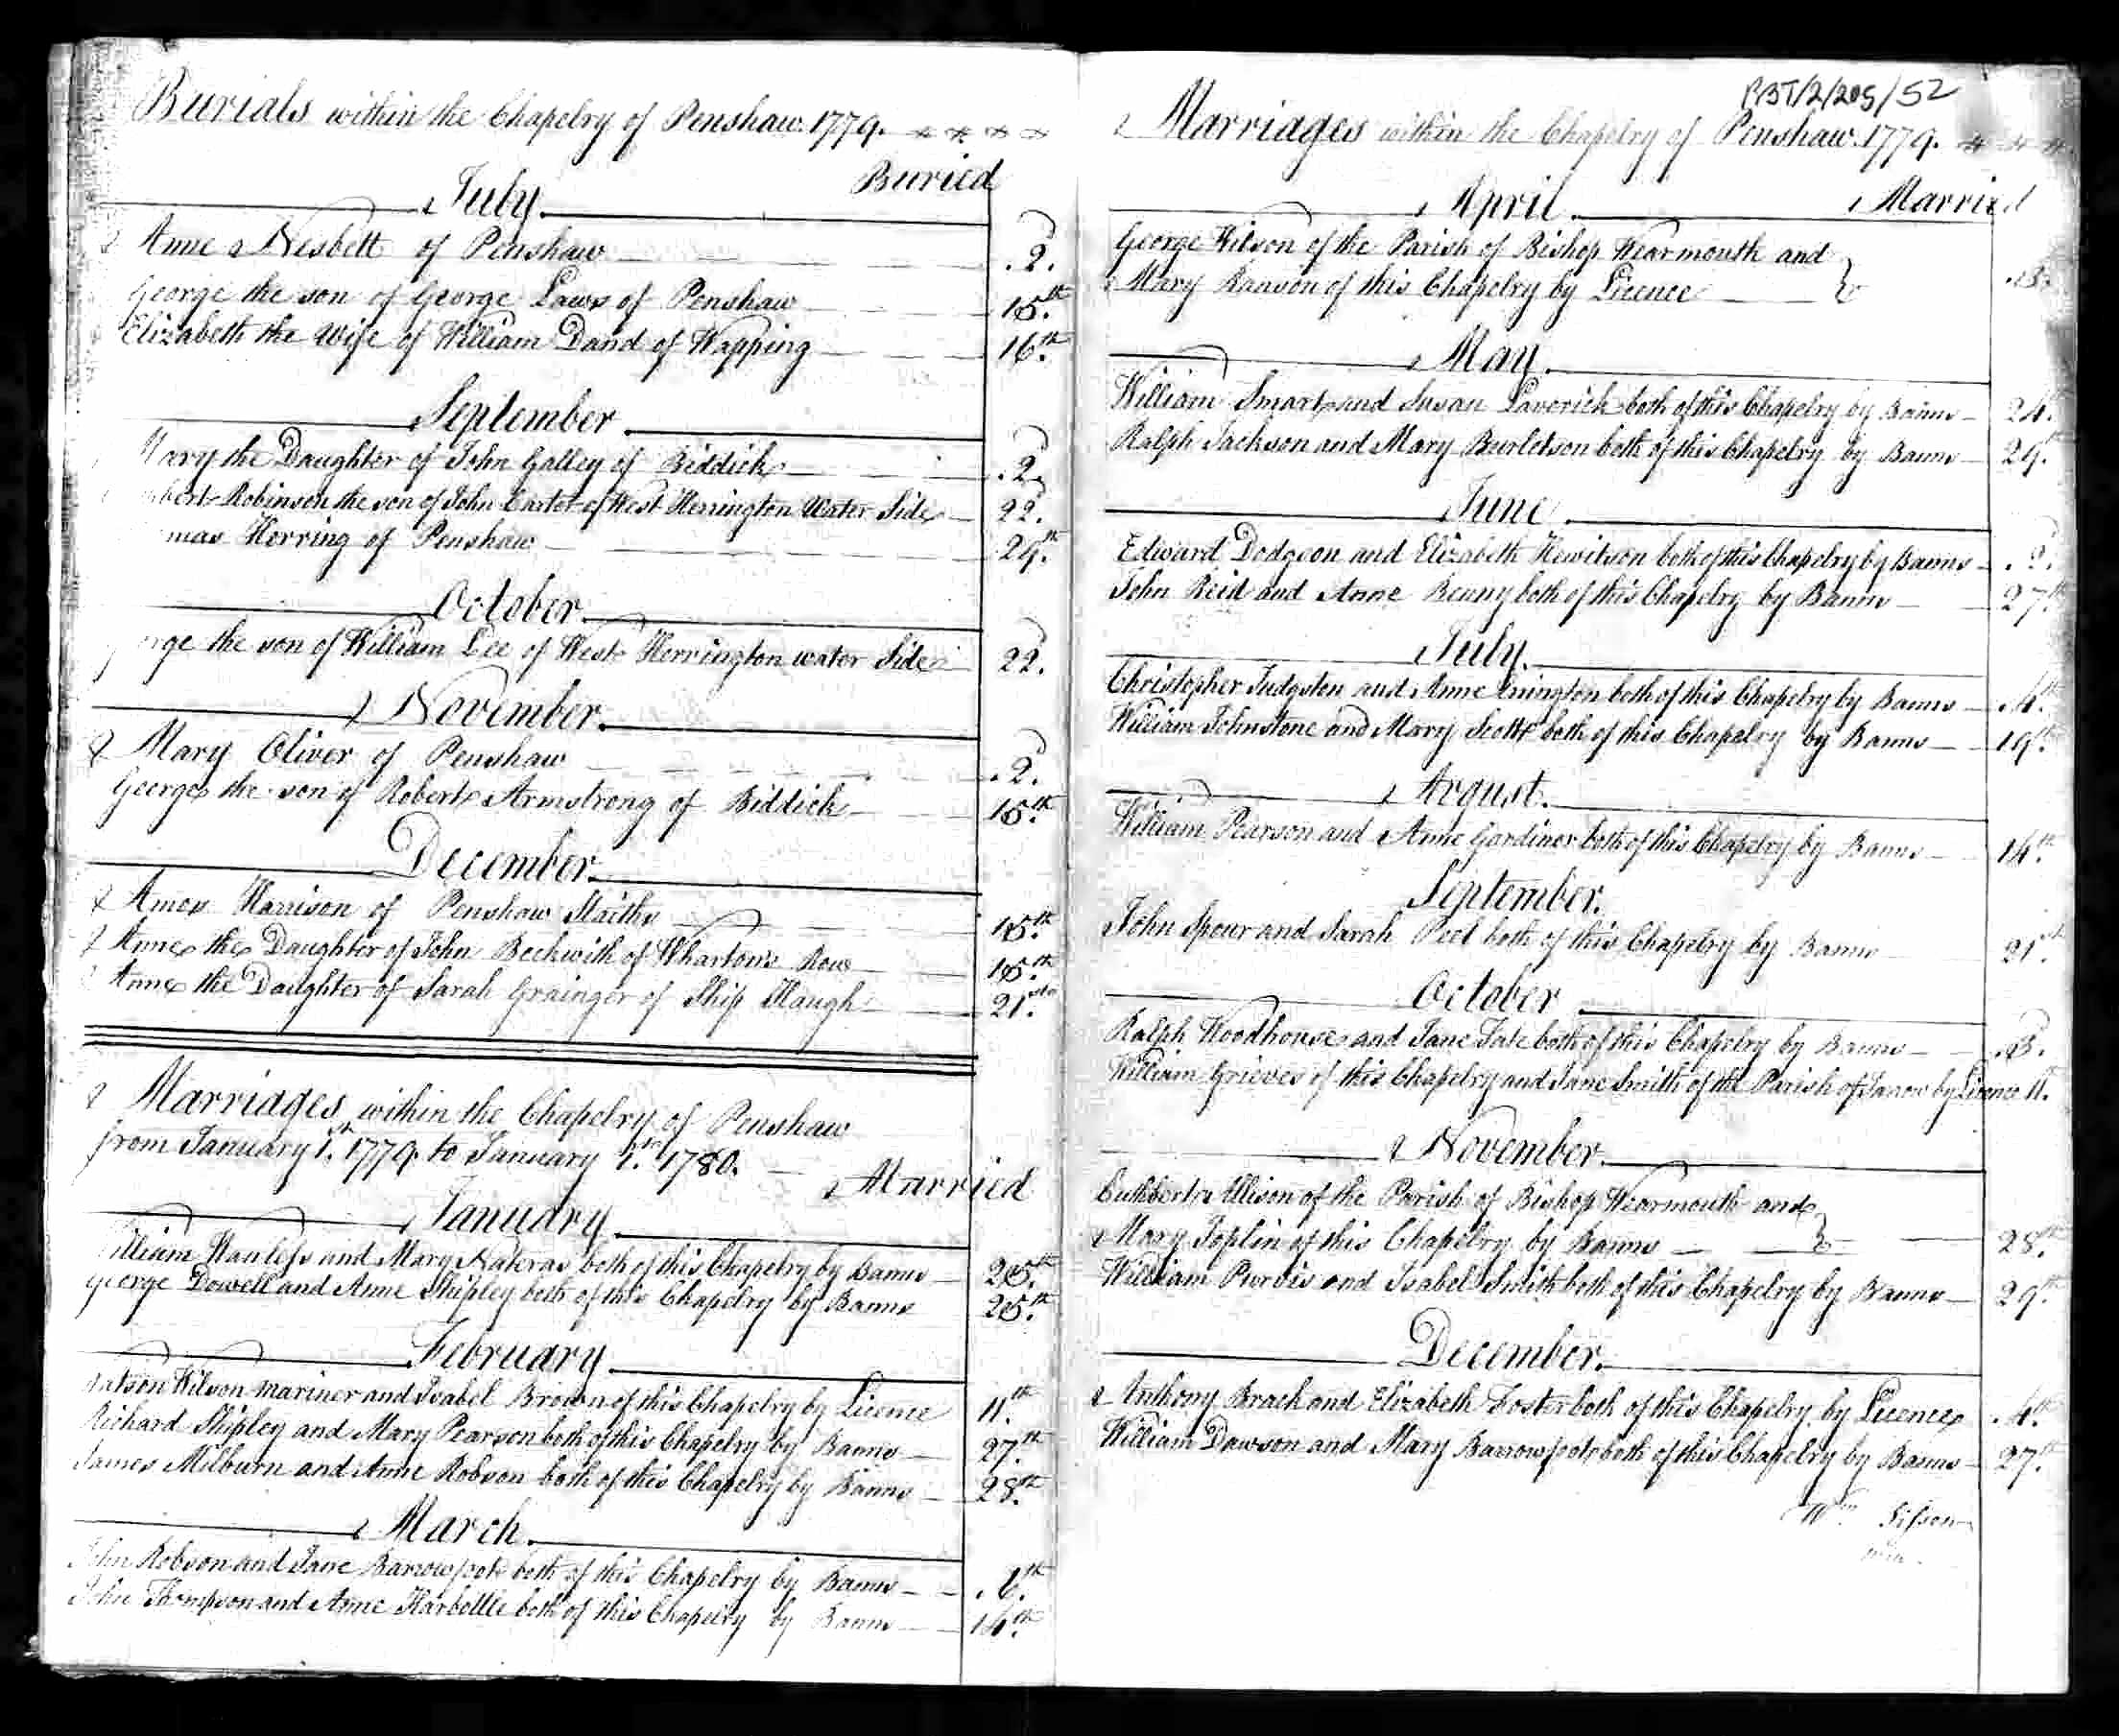 Burials within the Chapelry of Penshaw. 1779.
Buried
July
Anne Nesbett of Penshaw 2d.
George the son of George Laws of Penshaw 15th.
Elizabeth the Wife of William Dand of Wapping 16th.
September
Mary the Daughter of John Galley of Biddick 2d.
Robinson the son of John Carter of West Herrington Water Side 22d.
mas Herring of Penshaw 29th.
October
orge the son of William Lee of West Herrington water Side 22d.
November
Mary Oliver of Penshaw 2d.
George the son of Robert Armstrong of Biddick 15th.
December
Amos Harrison of Penshaw Staiths 15th.
Anne the Daughter of John Beckwith of Wharton's Row 15th.
Anne the Daughter of Sarah Grainger of Ship Haugh 21st.
Marriages within the Chapelry of Penshaw
from January 1st. 1779. to January 1st. 1780.
Married
January
illiam Stanless and Mary Nateras both of this Chapelry by Banns 25th.
George Dowell and Anne Shipley both of this Chapelry by Banns 25th.
February
Wilson mariner and Isabel Brown of this Chapelry by Licence 11th.
Richard Shipley and Mary Pearson both of this Chapelry by Banns 27th.
James Milburn and Anne Robson both of this Chapelry by Banns 28th.
March
John Robson and Jane Barrowfoot both of this Chapelry by Banns 6th.
John Thompson and Anne Harbottle both of this Chapelry by Banns 14th.
/52
Marriages within the Chapelry of Penshaw. 1779.
April
Married
George Wilson of the Parish of Bishop Wearmouth and
Mary Ranson of this Chapelry by Licence
May
William Smart and Susan Laverick both of this Chapelry by Banns 24th.
Ralph Jackson and Mary Burletson both of this Chapelry by Banns 29th.
June
Edward Dodgeon and Elizabeth Hewitson both of this Chapelry by Banns
John Reid and Anne Benny both of this Chapelry by Banns 27th.
July
Christopher Judgeton and Anne both of this Chapelry by Banns 4th.
William Johnstone and Mary Scott both of this Chapelry by Banns 19th.
August
William Pearson and Anne Gardiner both of this Chapelry by Banns 14th.
September
John Spour and Sarah Peel both of this Chapelry by Banns 21st.
October
Ralph Woodhouse and Jane Tate both of this Chapelry by Banns 3d.
William Grieves of this Chapelry and Jane Smith of the Parish of Jarrow by Licence 11th.
November
Cuthbert Allison of the Parish of Bishop Wearmouth and
Mary Joplin of this Chapelry by Banns 28th.
William Purvis and Isabel Smith both of this Chapelry by Banns 29th.
December
Anthony Brack and Elizabeth Foster both of this Chapelry by Licence 4th.
William Dawson and Mary Barrowfoot both of this Chapelry by Banns 27th.
Wm Sisson